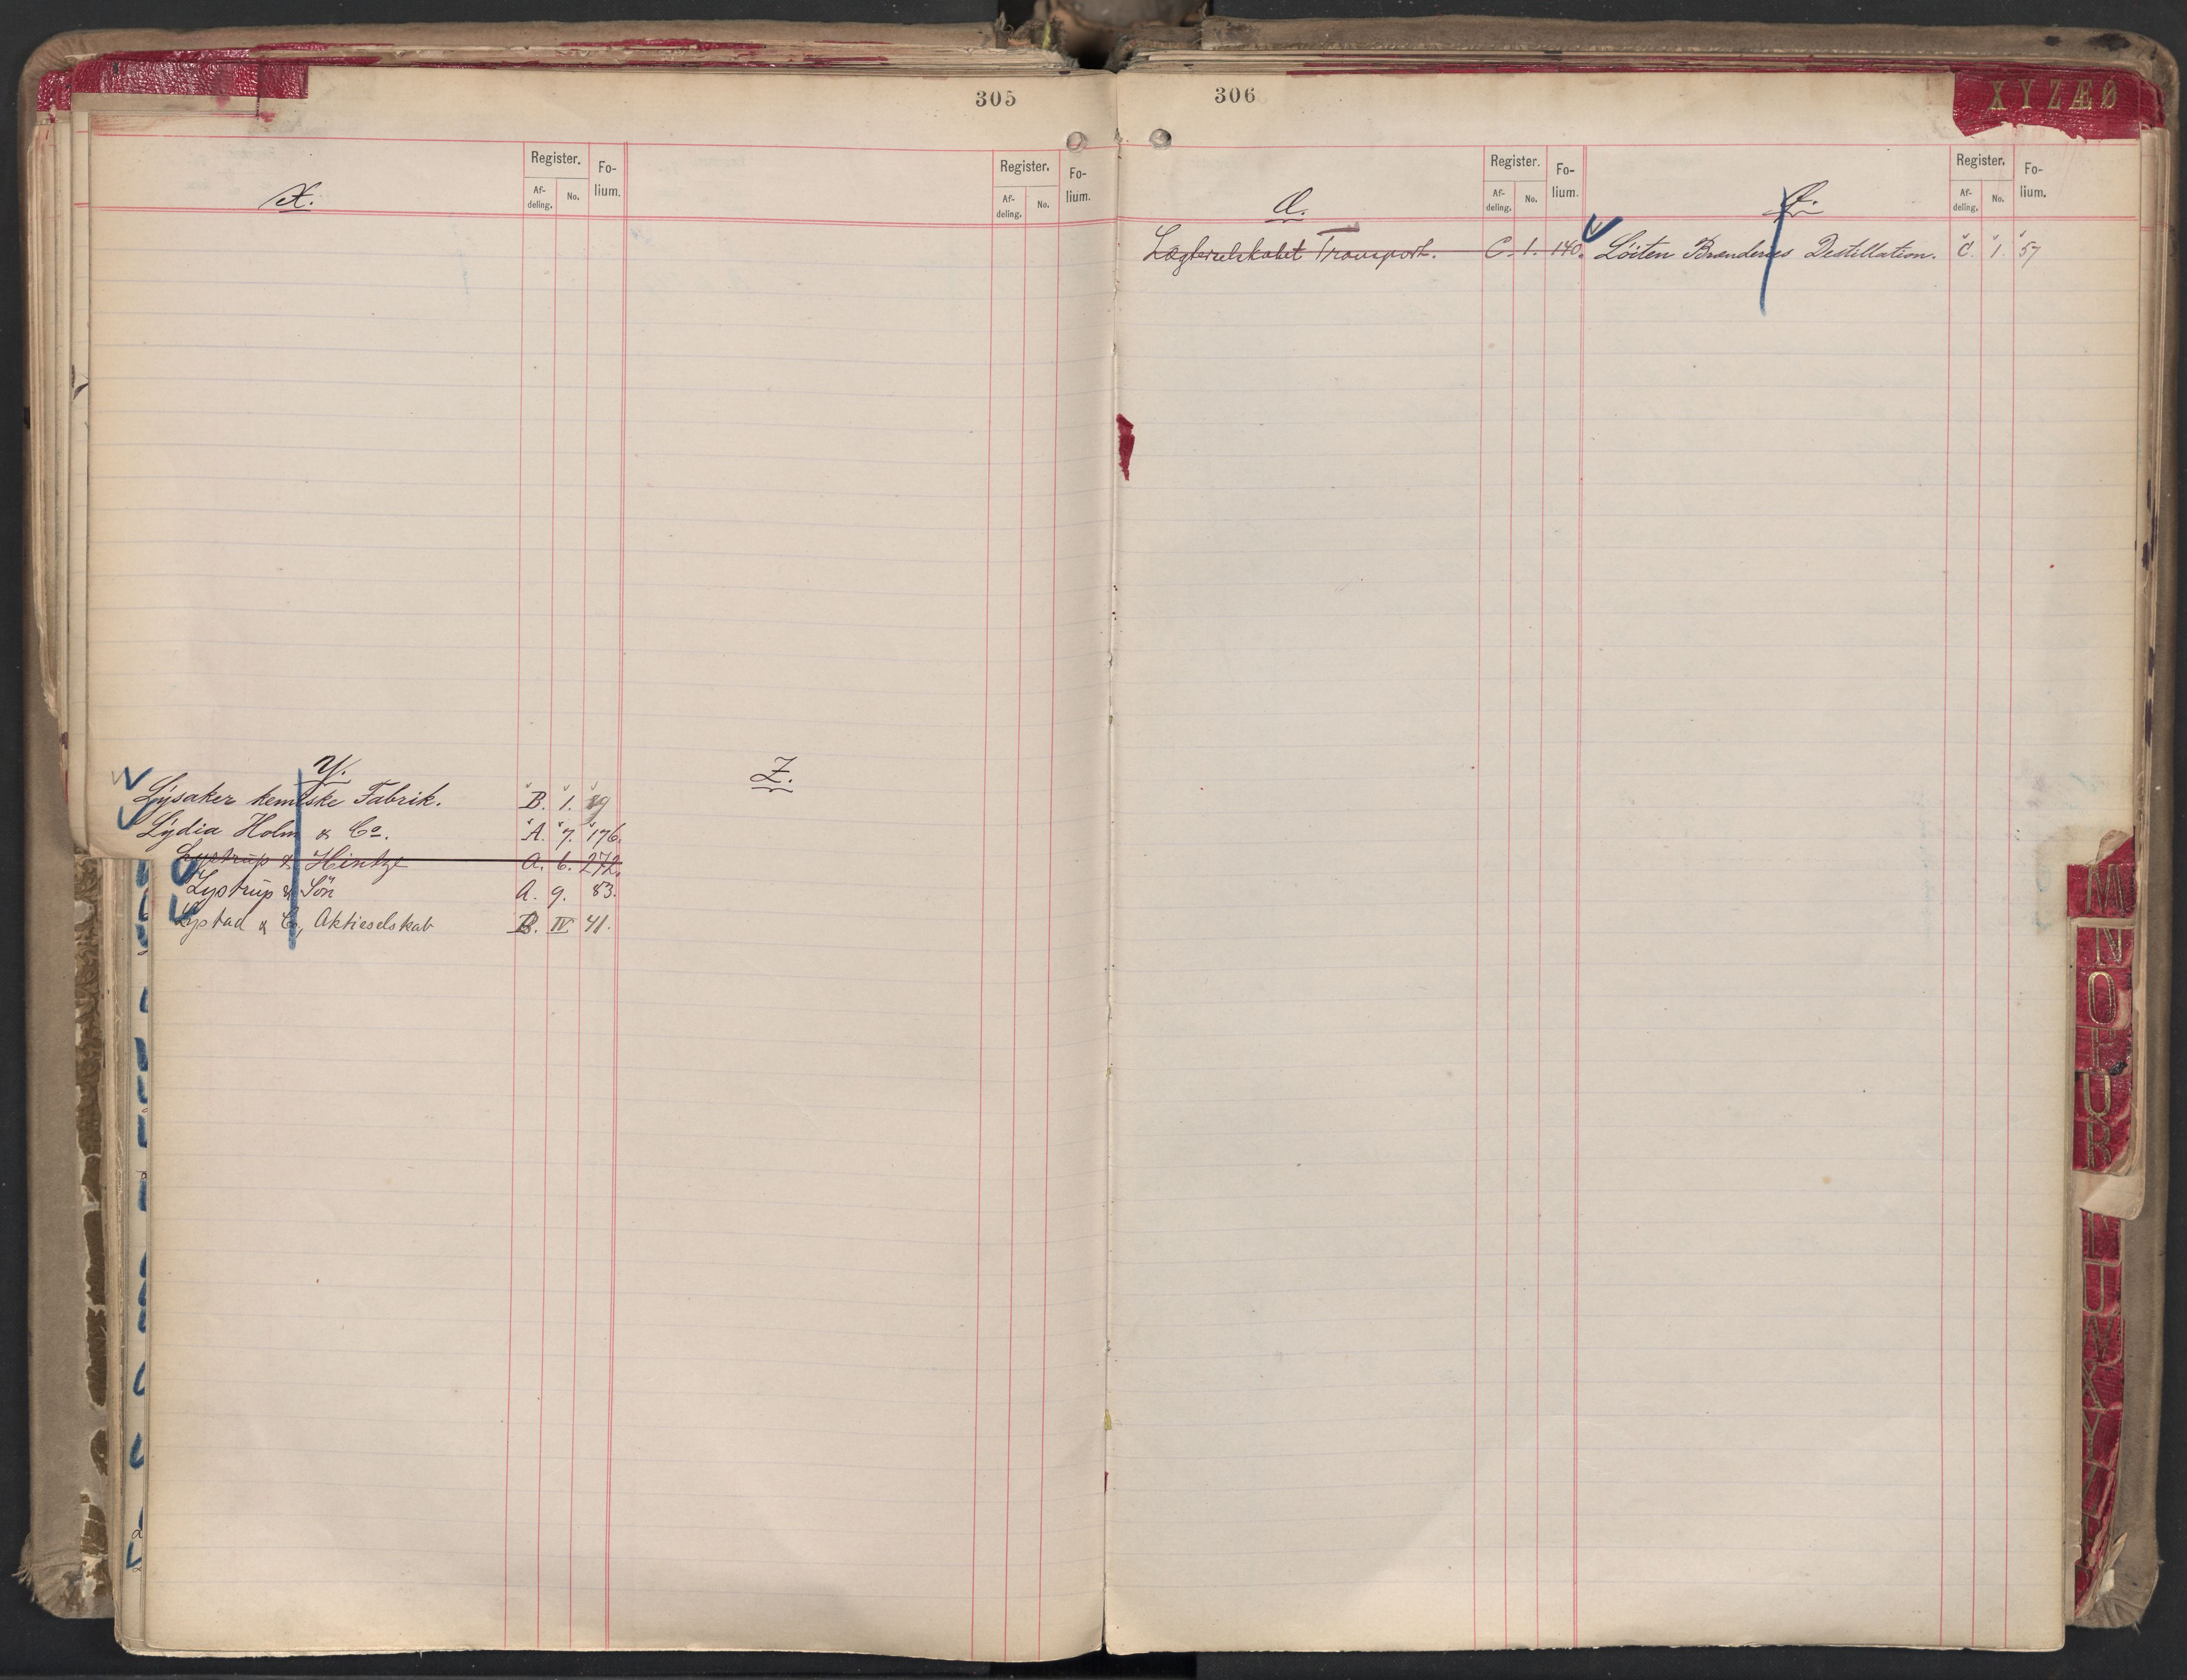 305
Register.
Fo-
lium.
Af-
deling.
No.
X.
Register.
Fo-
lium.
Af-
deling.
No.
Y.
Lysaker kemiske Fabrik. B. 1. 89
Lydia Holm & Co. A. 7. 176.
Lystrup & Hintze A. 6. 272.
Lystrup & Sön A. 9. 83.
Lystad & Co, Aktieselskab B. IV. 41.
Z.
306
XYZÆØ
Register.
Fo-
lium.
Af-
deling.
No.
Æ.
Lægterselskabet Transport. C. 1. 140.
Register.
Fo-
lium.
Af-
deling.
No.
Ø.
Löiten Brænderies Destillation. C. 1. 57
M
N
O
P
R
U
X
Y